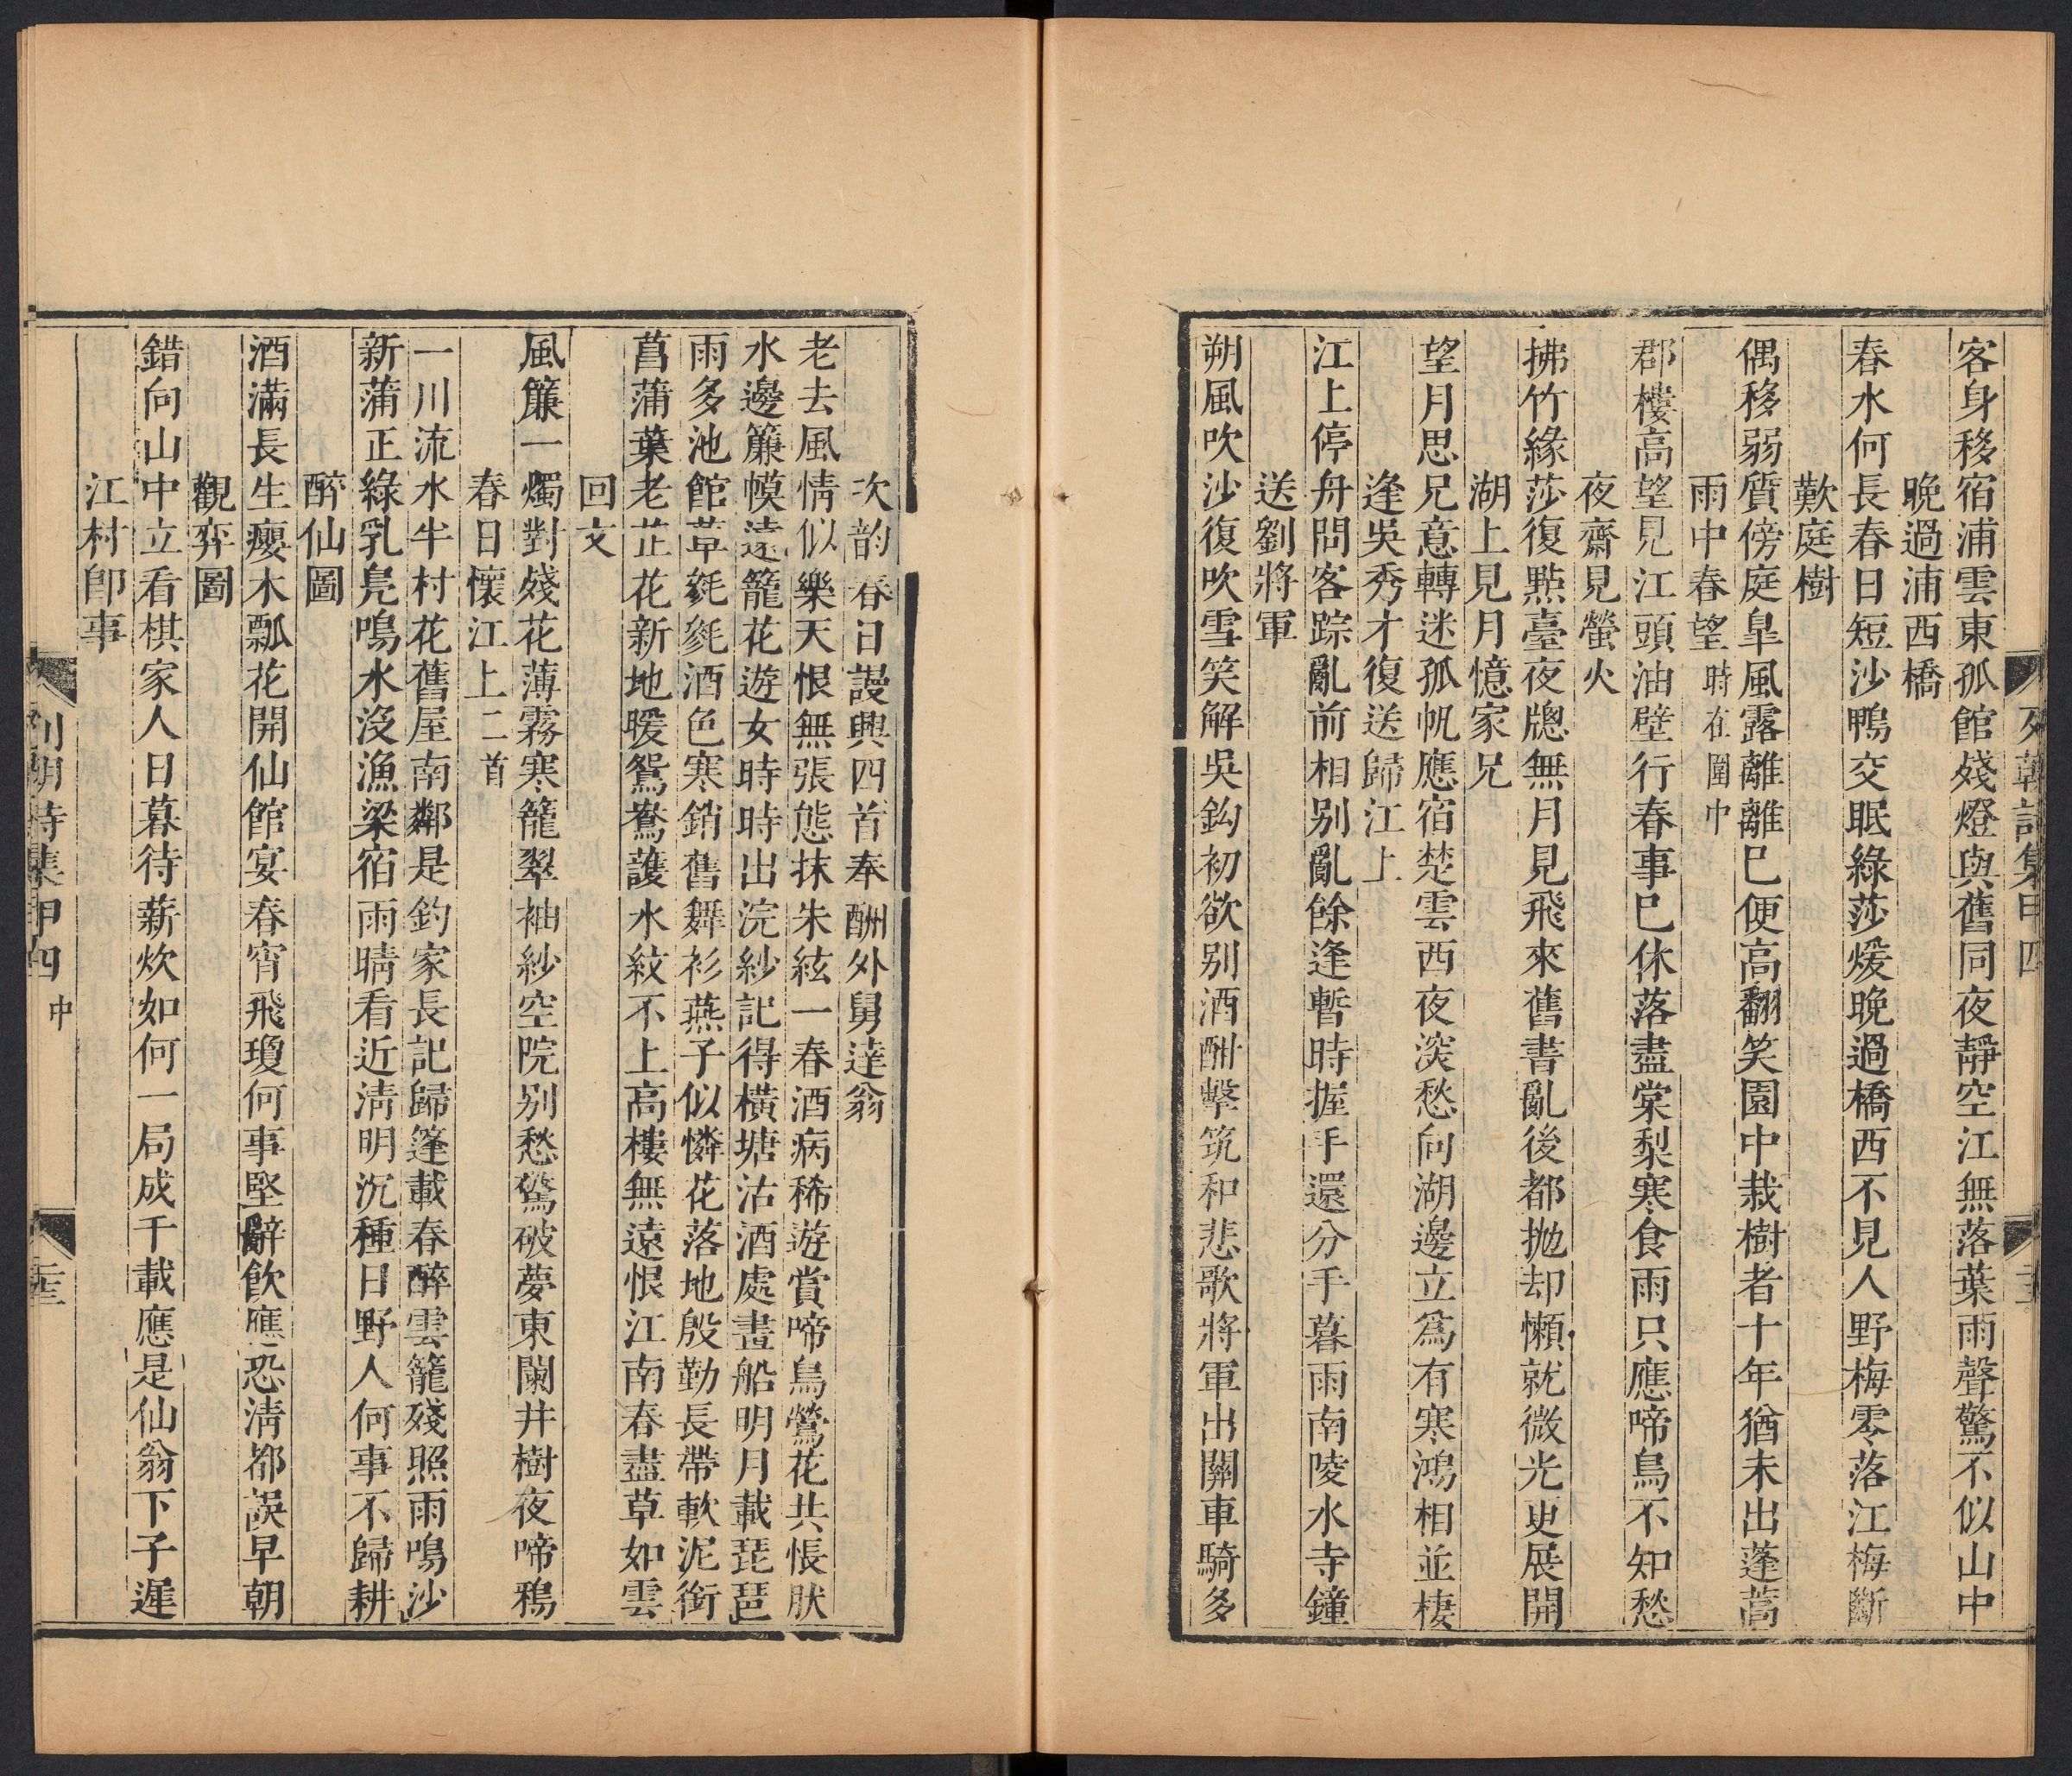 客身移宿浦雲東孤館殘燈與舊同夜靜空江無落葉雨聲驚不似山中
晚過浦西橋
春水何長春日短沙鴨交眠綠莎煖晚過橋西不見人野梅零落江梅斷
歎庭樹
偶移弱質傍庭皐風露離離已便高翻笑園中栽樹者十年猶未出蓬蒿
雨中春望時在圍中
郡樓高望見江頭油壁行春事已休落盡棠梨寒食雨只應啼鳥不知愁
夜齋見螢火
拂竹緣莎復點臺夜牕無月見飛來舊書亂後都拋却懶就微光更展開
湖上見月憶家兄
望月思兄意轉迷孤帆應宿楚雲西夜深愁向湖邊立爲有寒鴻相並棲
逢吳秀才復送歸江上
江上停舟問客踪亂前相別亂餘逢暫時握手還分手暮雨南陵水寺鐘
送劉將軍
朔風吹沙復吹雪笑解吳鈎初欲別酒酣擊筑和悲歌將軍出關車騎多
次韵春日謾興四首奉酬外舅達翁
老去風情似樂天恨無張態抹朱絃一春酒病稀遊賞啼鳥鶯花共悵肰
水邊簾幙遠籠花遊女時時出浣紗記得橫塘沽酒處畫船明月載琵琶
雨多池館草毿毿酒色寒銷舊舞衫燕子似憐花落地殷勤長帶軟泥銜
菖蒲葉老芷花新地暖鴛鴦護水紋不上高樓無遠恨江南春盡草如雲
回文
風簾一燭對殘花薄霧寒籠翠袖紗空院別愁驚破夢東闌井樹夜啼鴉
春日懷江上二首
一川流水半村花舊屋南鄰是釣家長記歸篷載春醉雲籠殘照雨鳴沙
新蒲正綠乳鳧鳴水沒漁梁宿雨晴看近清明沉種日野人何事不歸耕
醉仙圖
酒滿長生癭木瓢花開仙館宴春宵飛瓊何事堅辭飲應恐清都誤早朝
觀弈圖
錯向山中立看棋家人日暮待薪炊如何一局成千載應是仙翁下子遲
江村卽事
列朝詩集甲四中
二十三